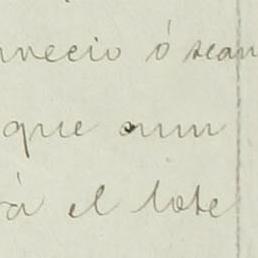 necio ó sean
que aun
rá el lote